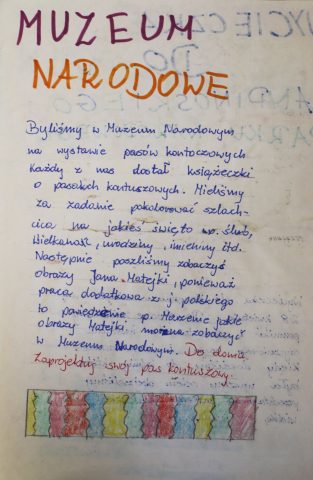 MUZEUM
NARODOWE
Byliśmy w Muzeum Narodowym
na wystawie pasów kontoczowych
Każdy z nas dostał książeczki
o pasach kontuszowych. Mieliśmy
za zadanie pokolorować szlach-
cica na jakieś święto np. ślub,
Wielkanoc, urodziny, imieniny itd.
Następnie poszliśmy zobaczyć
obrazy Jana Matejki, ponieważ
praca dodatkowa z j. polskiego
to p. Marzenie jakie
obrazy Matejki można zobaczyć
w Muzeum Narodowym. Do domu
Zaprojektuj swój pas kontuszowy.